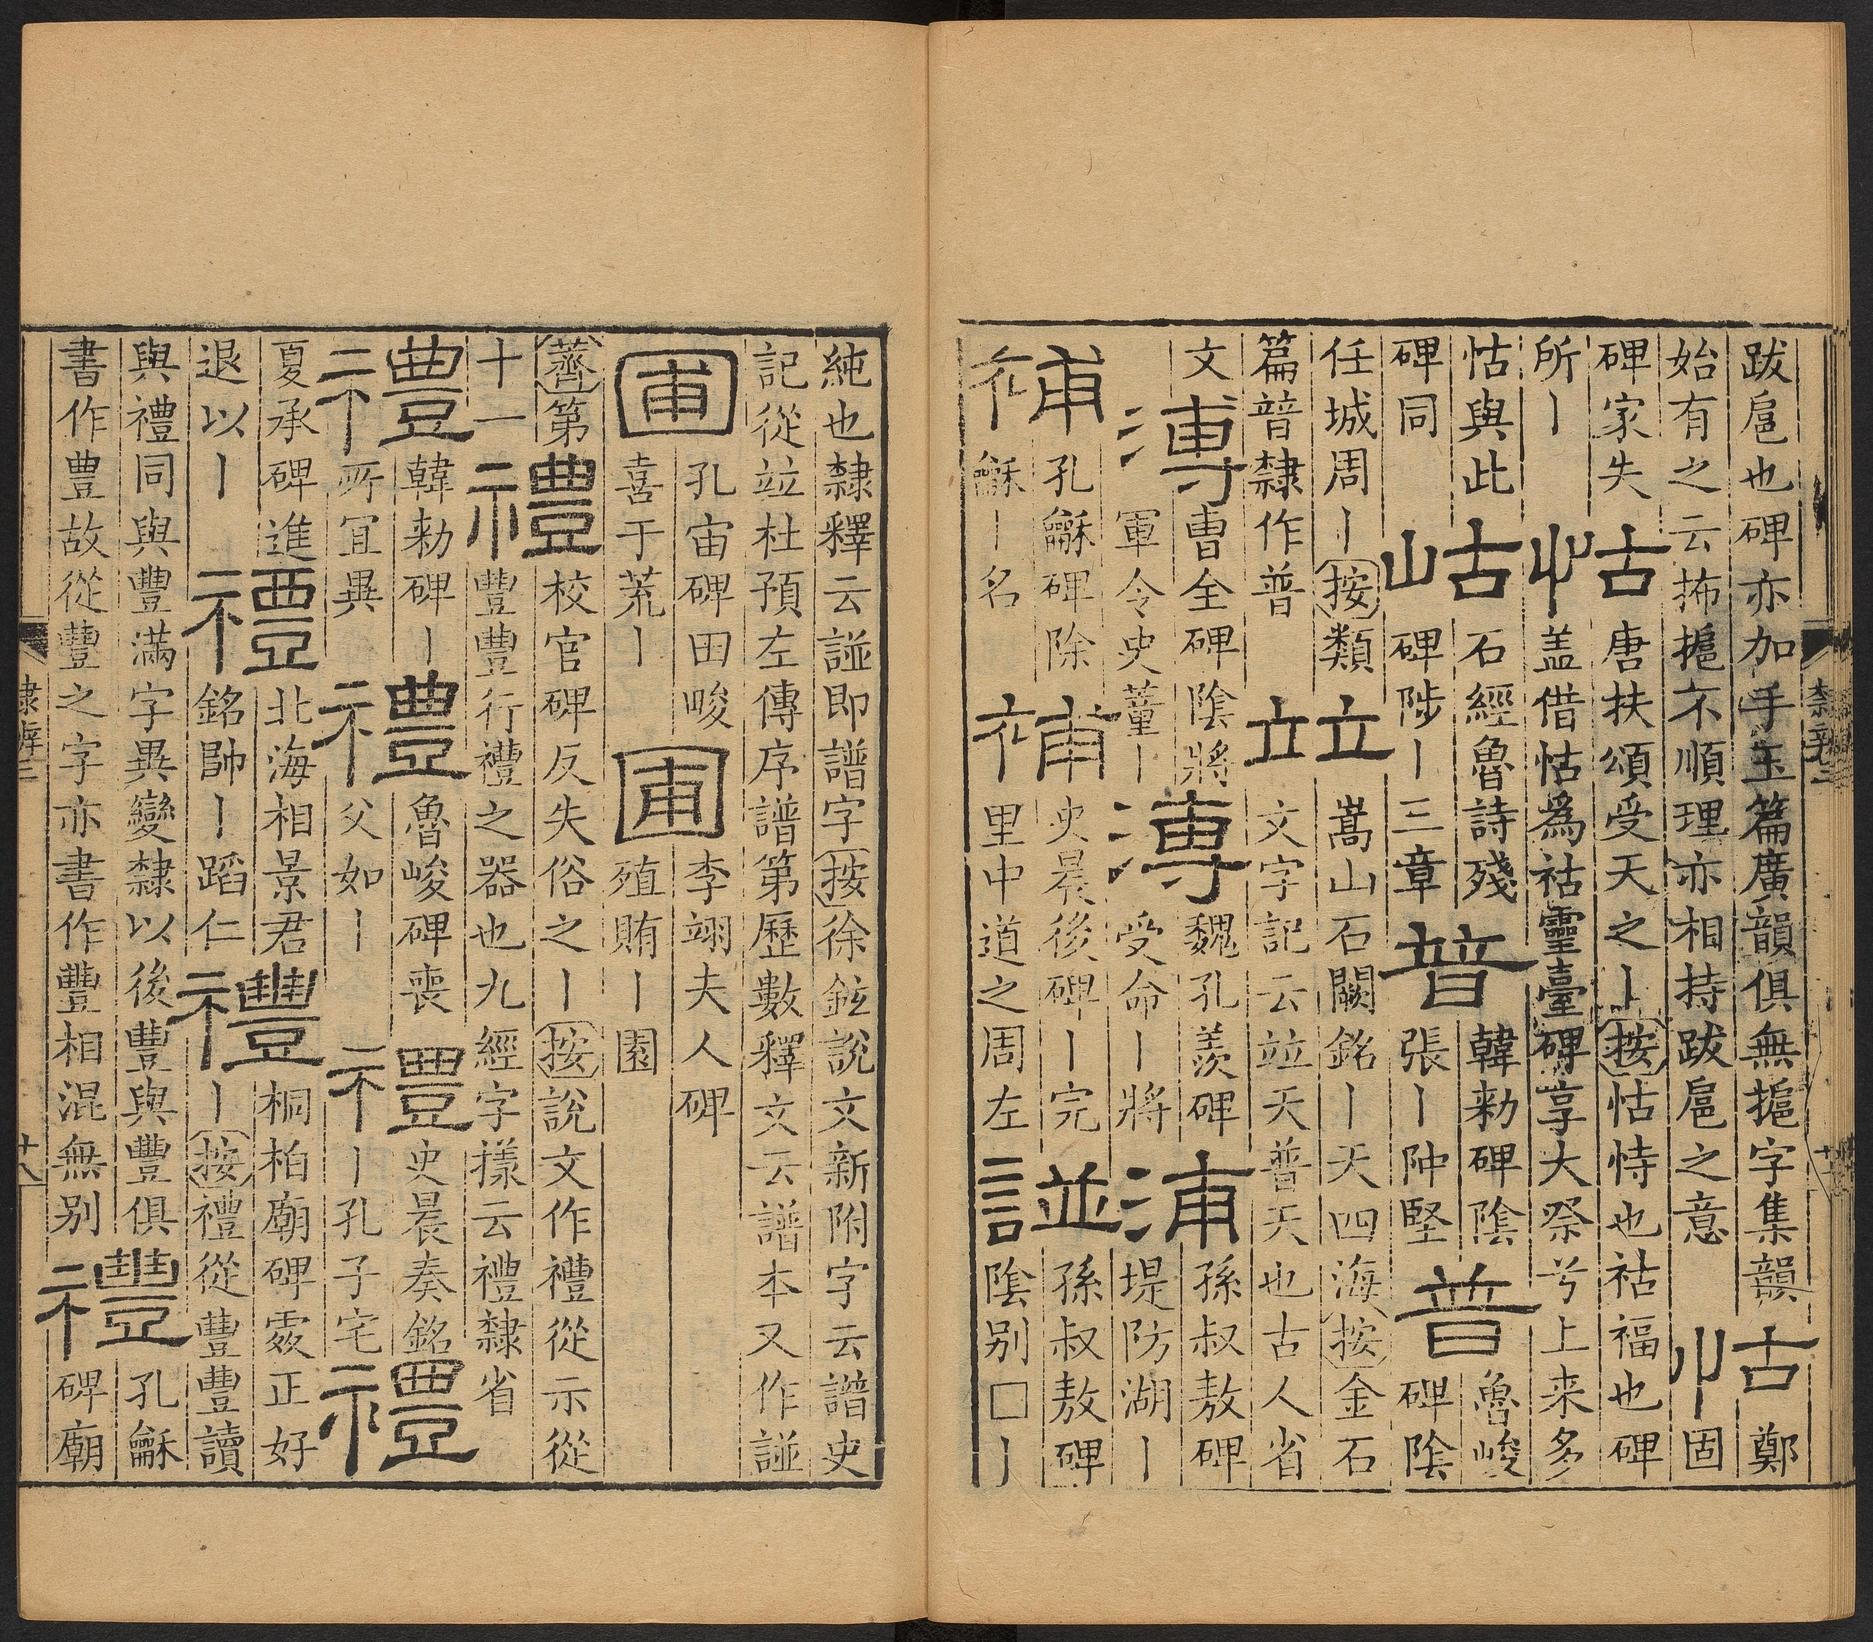 跋扈也碑亦加手玉篇廣韻俱無摢字集韻
始有之云抪摢不順理亦相持跋扈之意
怙
鄭
固
碑家失
所丨
怙
唐扶頌受天之丨按怙恃也祜福也碑
盖借怙爲祜靈臺碑享大祭兮上来多
怙與此
碑同
岵
石經魯詩殘
碑陟丨三章
普
韓勑碑陰
張丨仲堅
普
魯峻
碑陰
任城周丨按類
篇普隸作普
竝
嵩山石闕銘丨天四海按金石
文字記云竝天普天也古人省
文
溥
曹全碑陰將
軍令史董丨
溥
魏孔羨碑
受命丨將
浦
孫叔敖碑
堤防湖丨
補
孔龢碑除
龢丨名
補
史晨後碑丨完
里中道之周左
䜊
孫叔敖碑
陰别□丨
純也隸釋云䜊即譜字按徐鉉說文新附字云譜史
記從竝杜預左傳序譜第歷數釋文云譜本又作䜊
圃
孔宙碑田畯
喜于荒丨
圃
李翊夫人碑
殖賄丨園
薺第
十一
禮
校官碑反失俗之丨按說文作禮從示從
豐豊行禮之器也九經字㨾云禮隸省
禮
韓勑碑丨
所宜異
禮
魯峻碑喪
父如丨
禮
史晨奏銘
丨孔子宅
禮
夏承碑進
退以丨
禮
北海相景君
銘帥丨蹈仁
禮
桐柏廟碑䨓正好
丨按禮從豊豊讀
與禮同與豐滿字異變隸以後豊與豐俱
書作豊故從豐之字亦書作豐相混無别
禮
孔龢
碑廟
隸辨三
十八